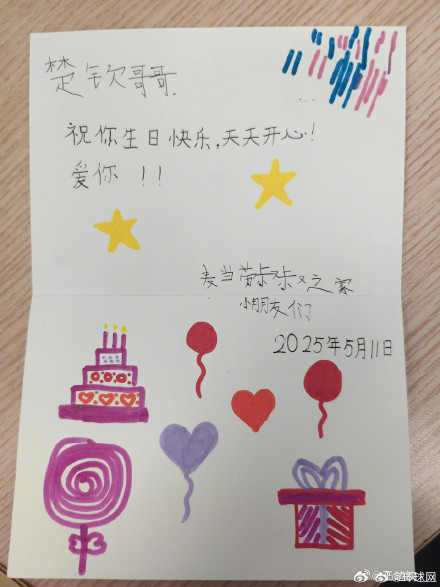 楚钦哥哥.
祝你生日快乐,天天开心!
爱你 !!
麦当劳叔叔之家
小朋友们
2025年5月11日